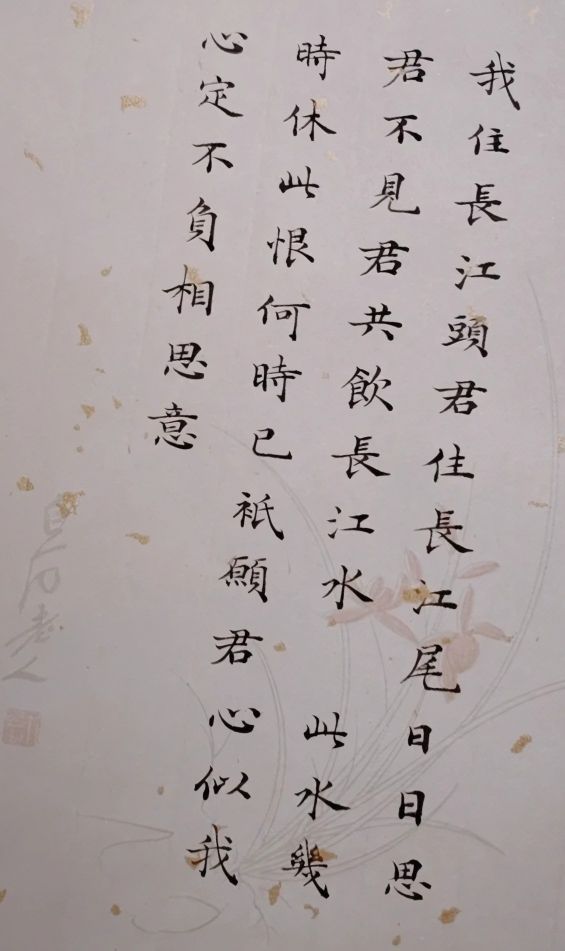 我住長江頭君住長江尾日日思
君不見君共飲長江水 此水幾
時休此恨何時已衹願君心似我
心定不負相思意
白石老人